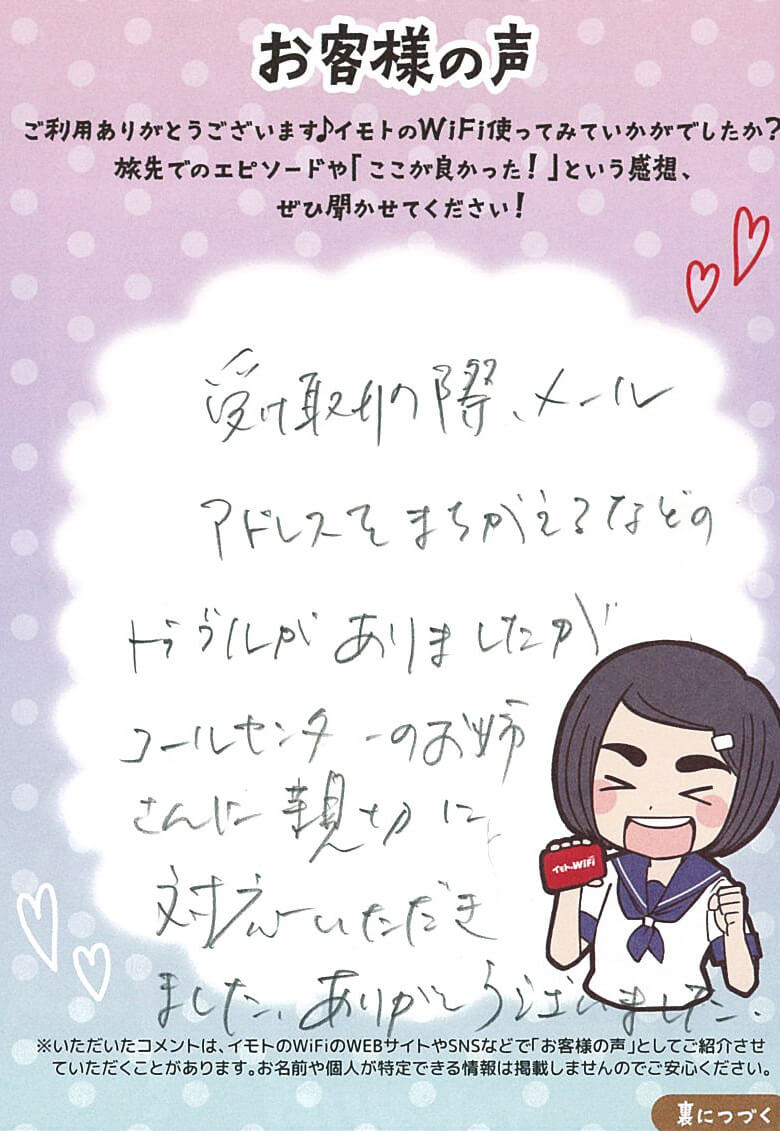 お客様の声
ご利用ありがとうございます♪イモトのWiFi使ってみていかがでしたか?
旅先でのエピソードや「ここが良かった!」という感想、
ぜひ聞かせてください!
受け取りの際、メール
アドレスをまちがえるなどの
トラブルがありましたが
コールセンターのお姉
さんに親切に
対応いただき
ました、ありがとうございました、
イモトのWiFi
※いただいたコメントは、イモトのWiFiのWEBサイトやSNSなどで「お客様の声」としてご紹介させ
ていただくことがあります。お名前や個人が特定できる情報は掲載しませんのでご安心ください。
裏につづく